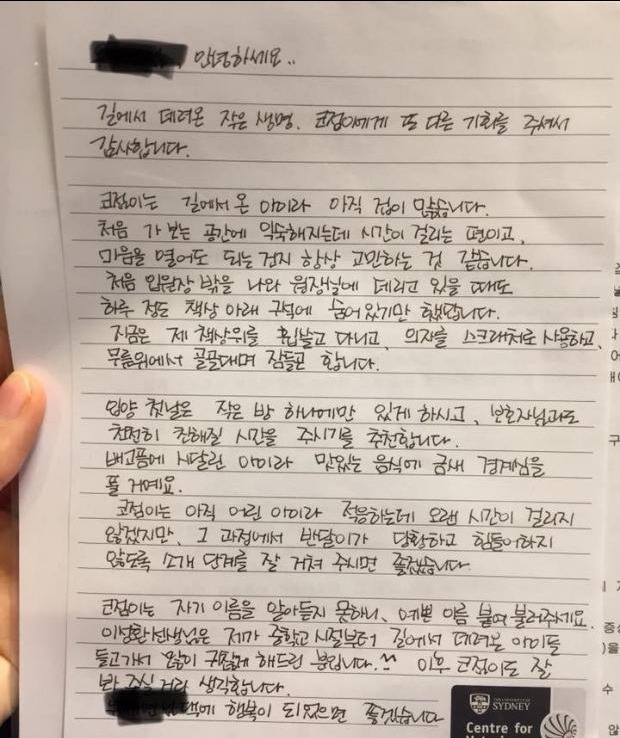 안녕하세요..
길에서 데려온 작은 생명. 코점이에게 또 다른 기회를 주셔서
감사합니다.
코점이는 길에서 온 아이라 아직 겁이 많습니다.
처음 가 보는 공간에 익숙해지는데 시간이 걸리는 편이고,
마음을 열어도 되는건지 항상 고민하는 것 같습니다.
처음 입원장 밖을 나와 원장실에 데리고 있을 때도
하루 정도 책상 아래 구석에 숨어있기만 했답니다.
지금은 제 책상위를 휩쓸고 다니고, 의자를 스크래처로 사용하고,
무릎위에서 골골대며 잠들곤 합니다.
입양 첫날은 작은 방 하나에만 있게 하시고, 보호자님과도
천천히 친해질 시간을 주시기를 추천합니다.
배고픔에 시달린 아이라 맛있는 음식에 금새 경계심을
풀 거예요.
코점이는 아직 어린 아이라 적응하는데 오랜 시간이 걸리지
않겠지만, 그 과정에서 반달이가 당황하고 힘들어하지
않도록 소개 단계를 잘 거쳐 주시면 좋겠습니다.
코점이는 자기 이름을 알아듣지 못하니, 예쁜 이름 붙여 불러주세요.
이성환선생님은 제가 중학교 시절부터 길에서 데려온 아이들
들고가서 많이 귀찮게 해드린 분입니다.^^ 이후 코점이도 잘
봐 주실 거라 생각합니다.
님댁에 행복이 되었으면 좋겠습니다
THE UNIVERSITY OF
SYDNEY
Centre for